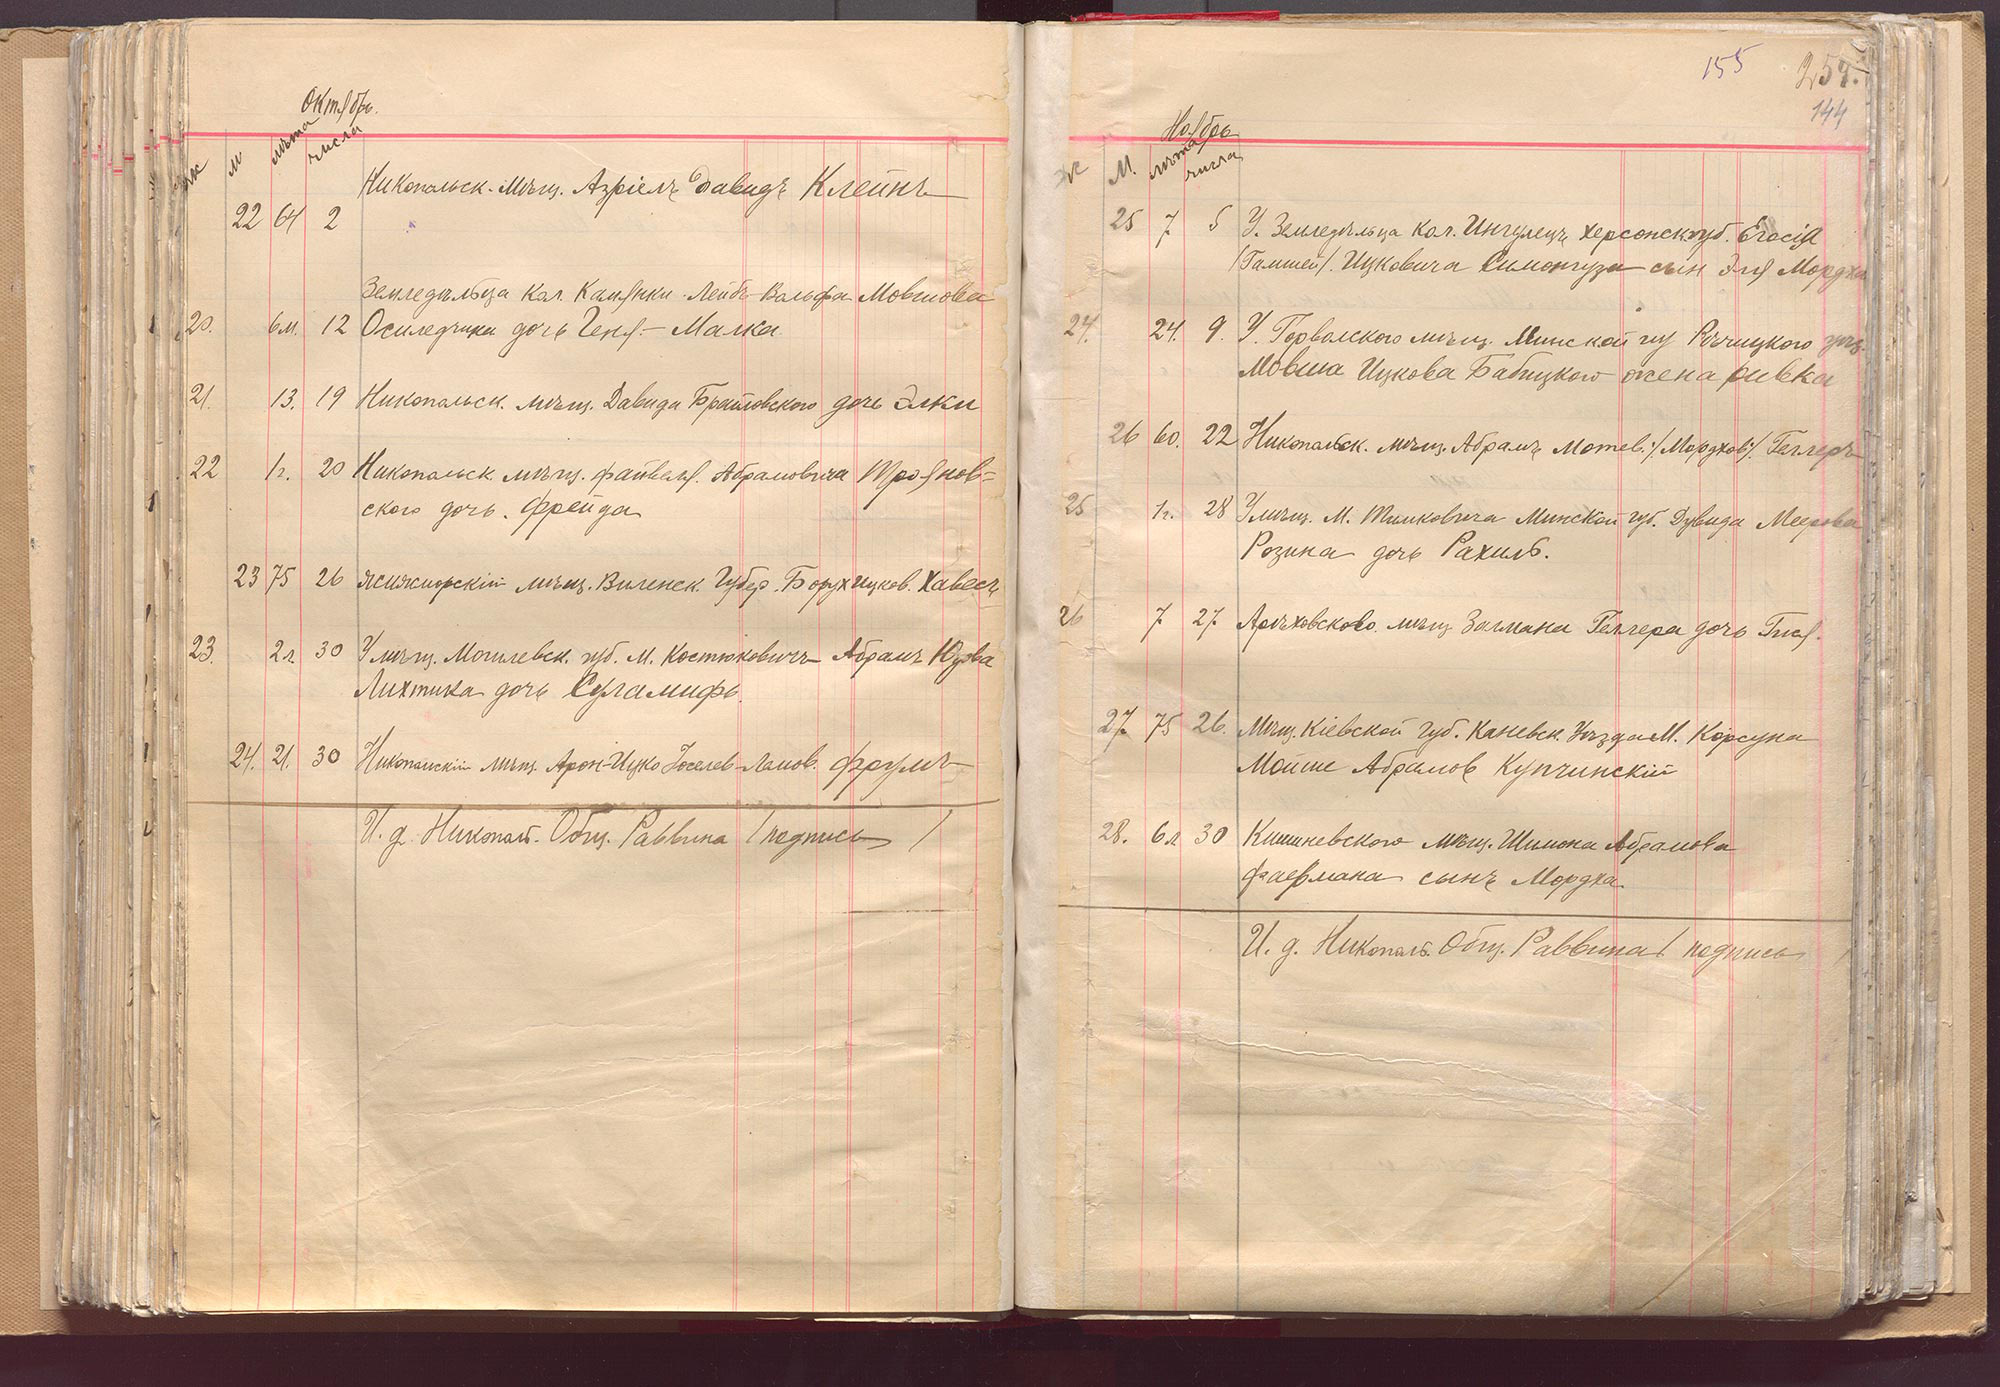 Октябрь.
ж м лѣта числа
Никопольск. Мѣщ. Азріелъ Давидъ Клейнъ
22 64 2
Земледѣльца Кол. Камянки Лейбъ-Вольфа Мовшова
20. 6м. 12 Осиледчика дочь Геня - Малка
21. 13. 19 Никопольск. мѣщ. Давида Браиловского дочь Элки
22 1г. 20 Никопольск. мѣщ. Файвеля Абрамовича Трояновского
ского дочь. Фрейда
23 75 26 мѣщ. Виленск. Губер. Борух Ицков. Хавесъ
23. 2л 30 У мѣщ. Могилевск. губ. М. Костюковичъ Абрамъ
Лихтика дочь Суламифь.
24. 21. 30 Никопольскій мѣщ. Арон-Ицко Іоселев-Ламов. Фрумъ
И. д. Никопол. Общ. Раввина / подпись /
155 257.
144
Ноябрь
ж М. лѣта числа
25 7 5 У. Земледѣльца Кол. Ингулецъ Херсонск. губ. Егосія
/Гамшей/. Ицковича сын Эля Мордха
24. 24. 9. У. Горвольского мѣщ. Минской гу Рѣчицкого уѣз.
Мовша Ицкова Бабицкого жена Ривка
26 60. 22 Никопольск. мѣщ. Абрамъ Мотев. / Мордхов /. Геллеръ
25 1г. 28 У мѣщ. М. Тимковича Минской губ. Дувида Меерова
Розина дочь Рахиль.
26 7 27 Арѣховсково. мѣщ. Залмана Геллера дочь Гися.
27 75 26. Мѣщ. Кіевской губ. Каневск. Уѣзда М. Корсуна
Мойше Абрамов Купчинскій
28. 6л 30 Кишиневского мѣщ. Шимона Абрамова
Фаермана сынъ Мордха.
И. д. Никопол. Общ. Раввина / подпись /